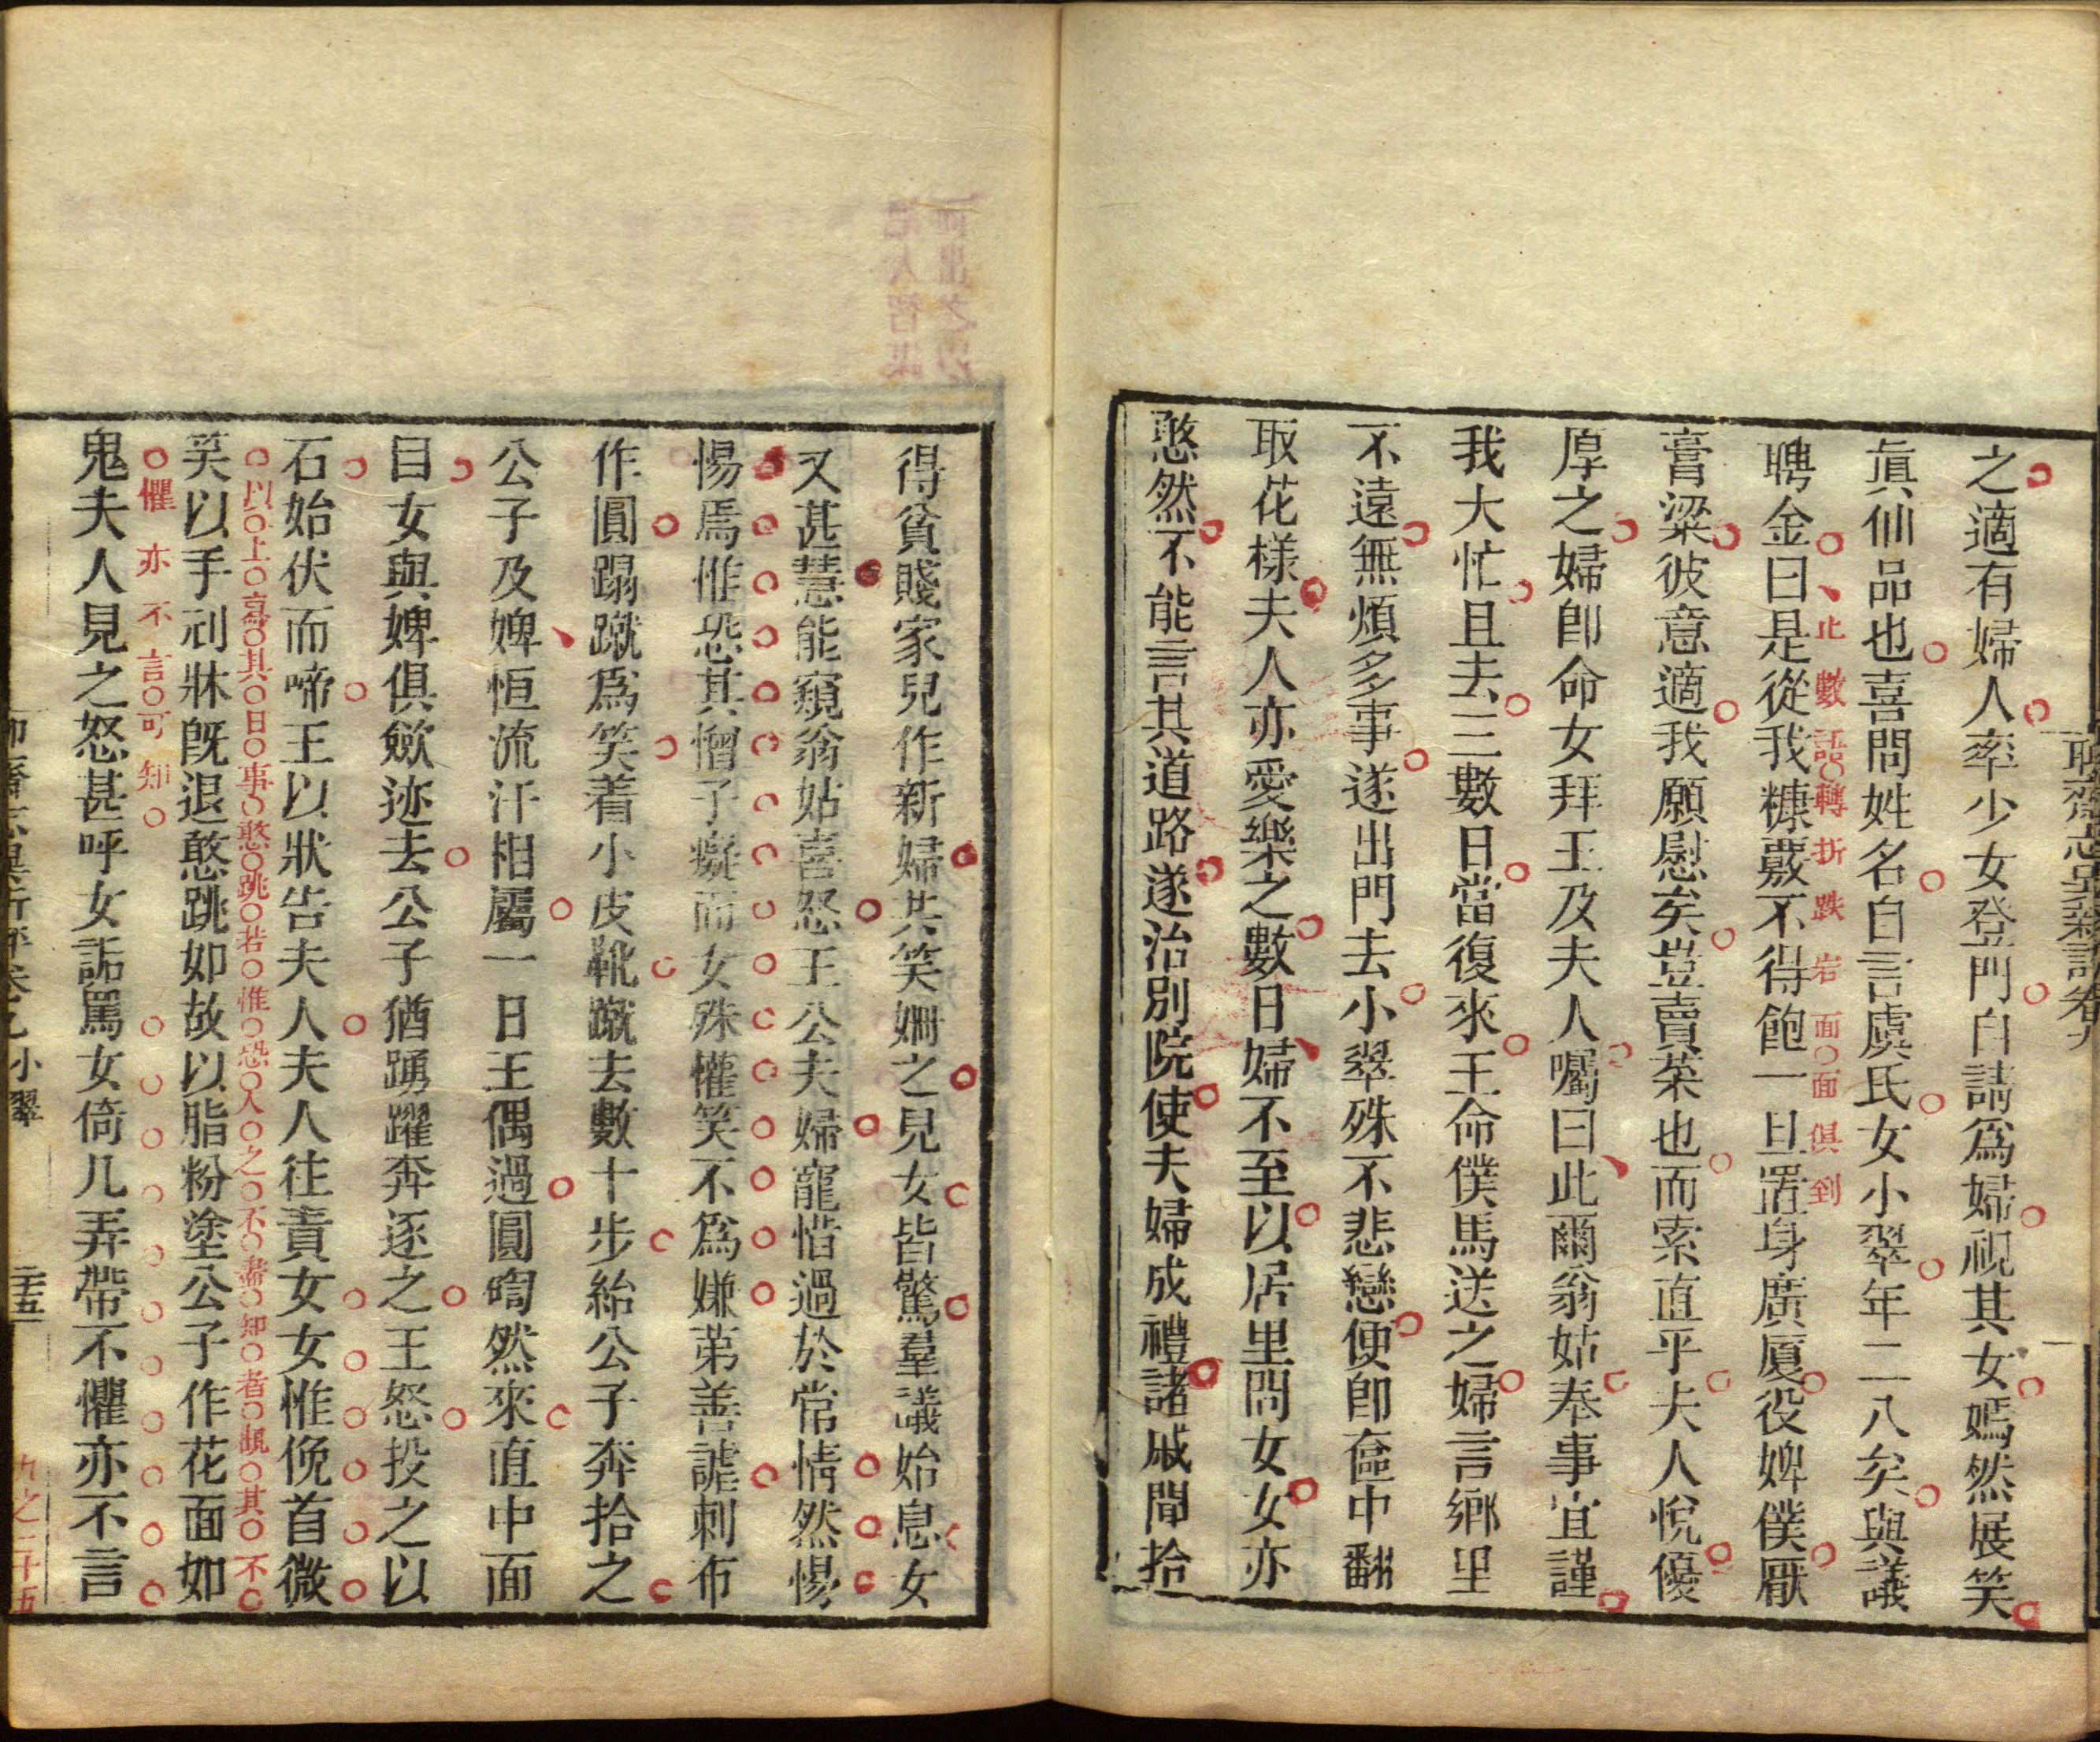 之適有婦人率少女登門自請爲婦視其女嫣然展笑
眞仙品也喜問姓名自言虞氏女小翠年二八矣與議
聘金曰是從我糠覈不得飽一旦置身廣厦役婢僕厭
止數語轉折跌宕面面俱到
膏粱彼意適我願慰矣豈賣菜也而索直乎夫人悅優
厚之婦卽命女拜王及夫人囑曰此爾翁姑奉事宜謹
我大忙且去三數日當復來王命僕馬送之婦言鄉里
不遠無煩多事遂出門去小翠殊不悲戀便卽奩中翻
取花樣夫人亦愛樂之數日婦不至以居里問女女亦
憨然不能言其道路遂治別院使夫婦成禮諸戚聞拾
得貧賤家兒作新婦共笑姍之見女皆驚羣議始息女
又甚慧能窺翁姑喜怒王公夫婦寵惜過於常情然惕
惕焉惟恐其憎子癡而女殊懽笑不爲嫌第善謔刺布
作圓蹋蹴爲笑着小皮靴蹴去數十步紿公子奔拾之
公子及婢恒流汗相屬一日王偶過圓䃔然來直中面
目女與婢俱歛迹去公子猶踴躍奔逐之王怒投之以
石始伏而啼王以狀告夫人夫人往責女女惟俛首微
以上寫其日事憨跳若惟恐人之不盡知者覘其不
笑以手刓牀旣退憨跳如故以脂粉塗公子作花面如
懼亦不言可知
鬼夫人見之怒甚呼女詬罵女倚几弄帶不懼亦不言
小翠
九之三十五